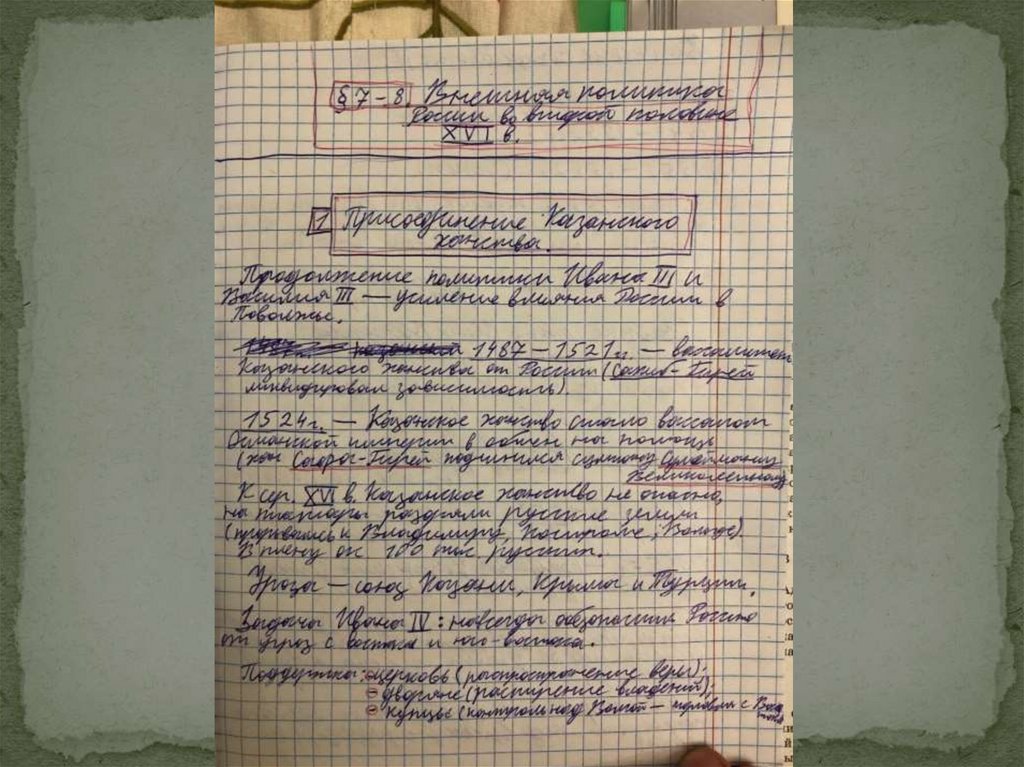 § 7-8. Внешняя политика
России во второй половине
XVI в.
1 Присоединение Казанского
ханства.
Продолжение политики Ивана III и
Василия III — усиление влияния России в
Поволжье.
1487 – 1521 гг. — вассалитет
Казанского ханства от России (Сахиб-Гирей
ликвидировал зависимость).
1524 г. — Казанское ханство стало вассалом
Османской империи в обмен на помощь
(хан подчинился султану Сулейману
Великолепному
К сер. XVI в. Казанское ханство не опасно,
но разоряли русские земли
(прорывались к Владимиру, Костроме, Вологде).
В плену ок. 100 тыс. русских.
Угроза — союз Казани, Крыма и Турции.
Задача Ивана IV: навсегда обезопасить Россию
от угроз с востока и юго-востока.
Поддержка: церковь (распространение веры);
дворяне (расширение владений);
купцы (контроль над Волгой — торговля с